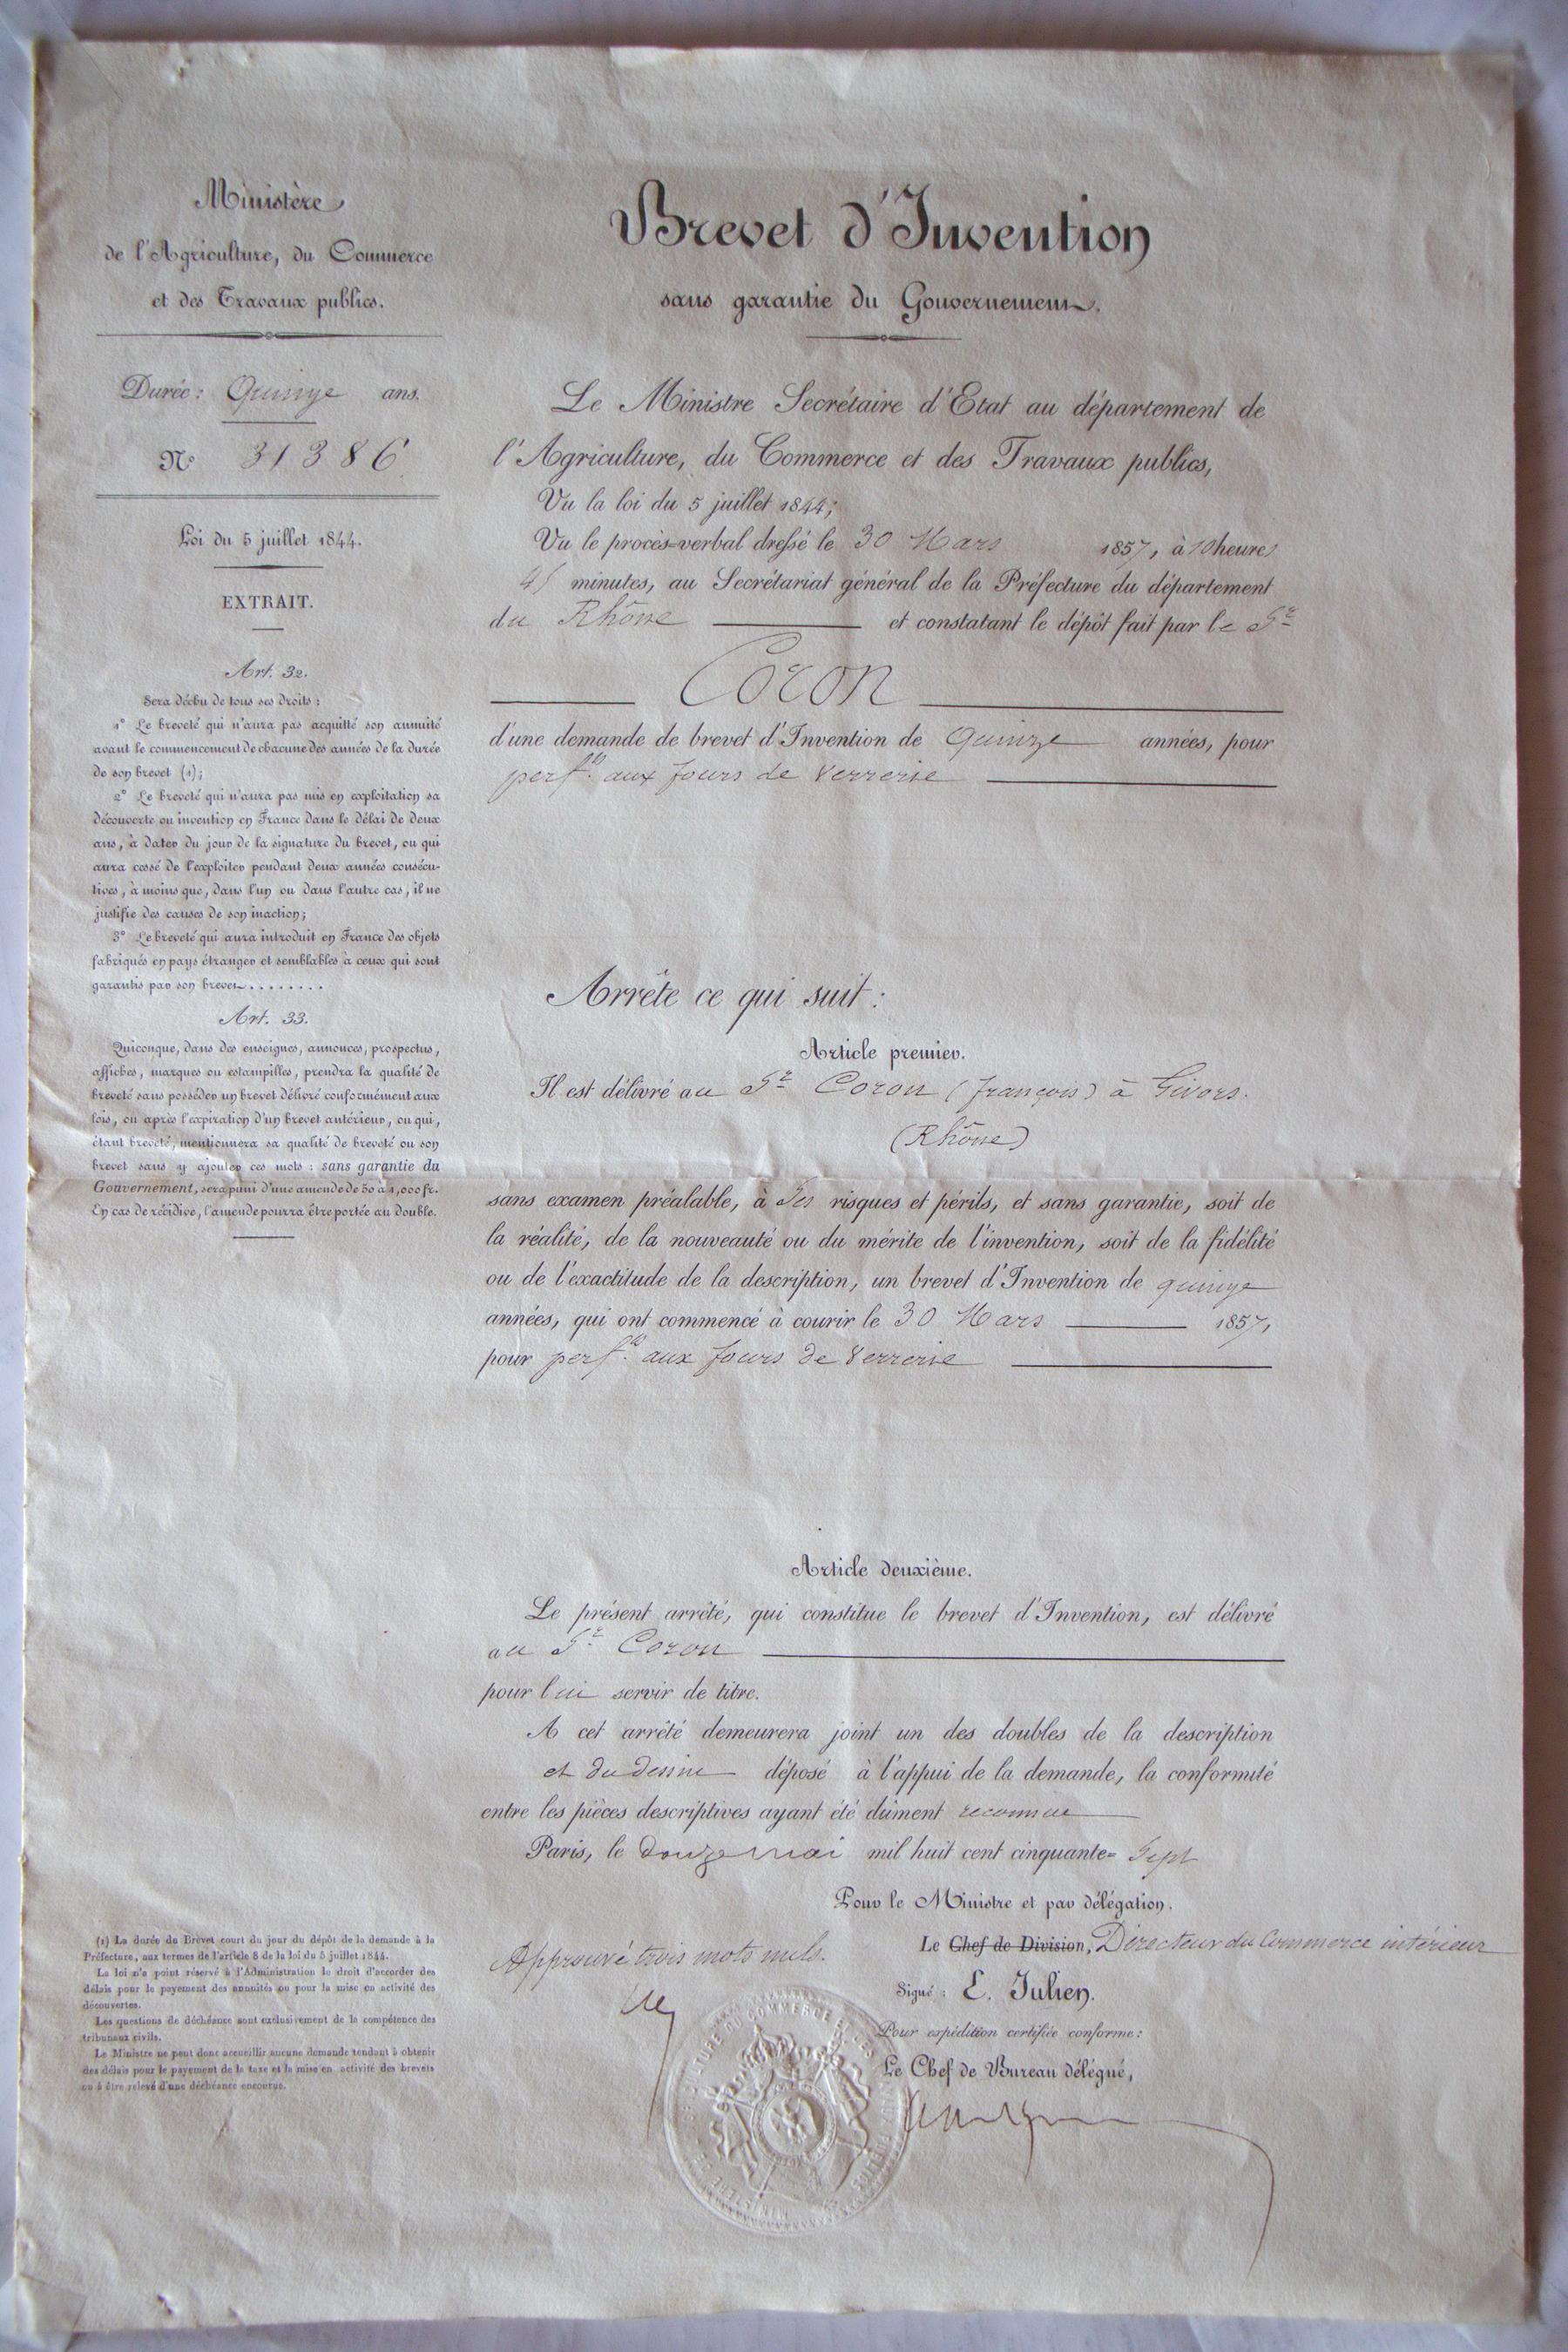 Ministère
de l'Agriculture, du Commerce
et des Travaux publics.
Durée : Quinze ans.
N° 31386
Loi du 5 juillet 1844.
EXTRAIT.
Art. 32.
Sera déchu de tous ses droits :
1° Le breveté qui n'aura pas acquitté son annuité
avant le commencement de chacune des années de la durée
de son brevet (1);
2° Le breveté qui n'aura pas mis en exploitation sa
découverte ou invention en France dans le délai de deux
ans, à dater du jour de la signature du brevet, ou qui
aura cessé de l'exploiter pendant deux années consécu-
tives, à moins que, dans l'un ou dans l'autre cas, il ne
justifie des causes de son inaction;
3° Le breveté qui aura introduit en France des objets
fabriqués en pays étranger et semblables à ceux qui sont
garantis par son brevet........
Art. 33.
Quiconque, dans des enseignes, annonces, prospectus,
affiches, marques ou estampilles, prendra la qualité de
breveté sans posséder un brevet délivré conformément aux
lois, ou après l'expiration d'un brevet antérieur, ou qui,
étant breveté, mentionnera sa qualité de breveté ou son
brevet sans y ajouter ces mots : sans garantie du
Gouvernement, sera puni d'une amende de 50 à 1,000 fr.
En cas de récidive, l'amende pourra être portée au double.
(1) La durée du Brevet court du jour du dépôt de la demande à la
Préfecture, aux termes de l'article 8 de la loi du 5 juillet 1844.
La loi n'a point réservé à l'Administration le droit d'accorder des
délais pour le payement des annuités ou pour la mise en activité des
découvertes.
Les questions de déchéance sont exclusivement de la compétence des
tribunaux civils.
Le Ministre ne peut donc accueillir aucune demande tendant à obtenir
des délais pour le payement de la taxe et la mise en activité des brevets
ou à être relevé d'une déchéance encourue.
Brevet d'Invention
sans garantie du Gouvernement.
Le Ministre Secrétaire d'Etat au département de
l'Agriculture, du Commerce et des Travaux publics,
Vu la loi du 5 juillet 1844;
Vu le procès-verbal dressé le 30 Mars 1857, à 10 heures
45 minutes, au Secrétariat général de la Préfecture du département
du Rhône et constatant le dépôt fait par le Sr
Coron
d'une demande de brevet d'Invention de Quinze années, pour
perfts. aux fours de verrerie
Arrête ce qui suit :
Article premier.
Il est délivré au Sr Coron (françois) à Givors.
(Rhône)
sans examen préalable, à ses risques et périls, et sans garantie, soit de
la réalité, de la nouveauté ou du mérite de l'invention, soit de la fidélité
ou de l'exactitude de la description, un brevet d'Invention de quinze
années, qui ont commencé à courir le 30 Mars 1857,
pour perfts. aux fours de verrerie
Article deuxième.
Le présent arrêté, qui constitue le brevet d'Invention, est délivré
au Sr. Coron
pour lui servir de titre.
A cet arrêté demeurera joint un des doubles de la description
et du dessin déposé à l'appui de la demande, la conformité
entre les pièces descriptives ayant été dûment reconnue
Paris, le douze mai mil huit cent cinquante= sept
Pour le Ministre et par délégation.
Le Chef de Division, Directeur du Commerce intérieur
Approuvé trois mots nuls.
Signé : E. Julien.
Pour expédition certifiée conforme :
Le Chef de Bureau délégué,